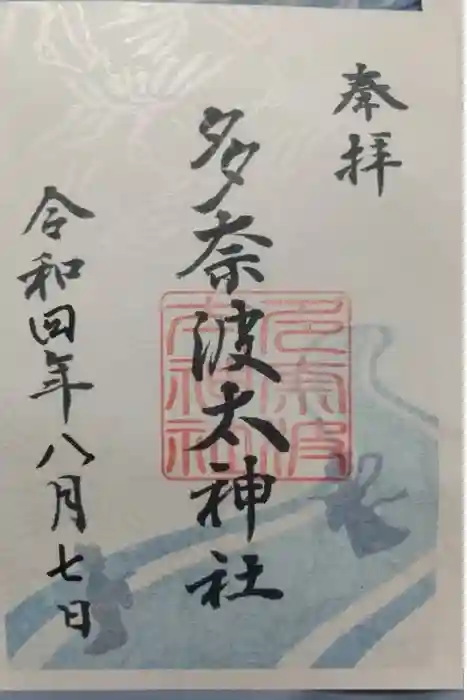 奉拝
多奈波太神社
令和四年八月七日